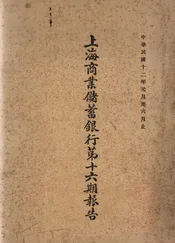 中華民國十二年先月至六月止
上海商業儲蓄銀行第十六期報告